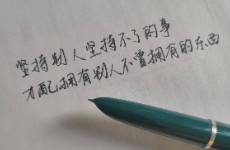 坚持别人坚持不了的事
才配拥有别人不曾拥有的东西